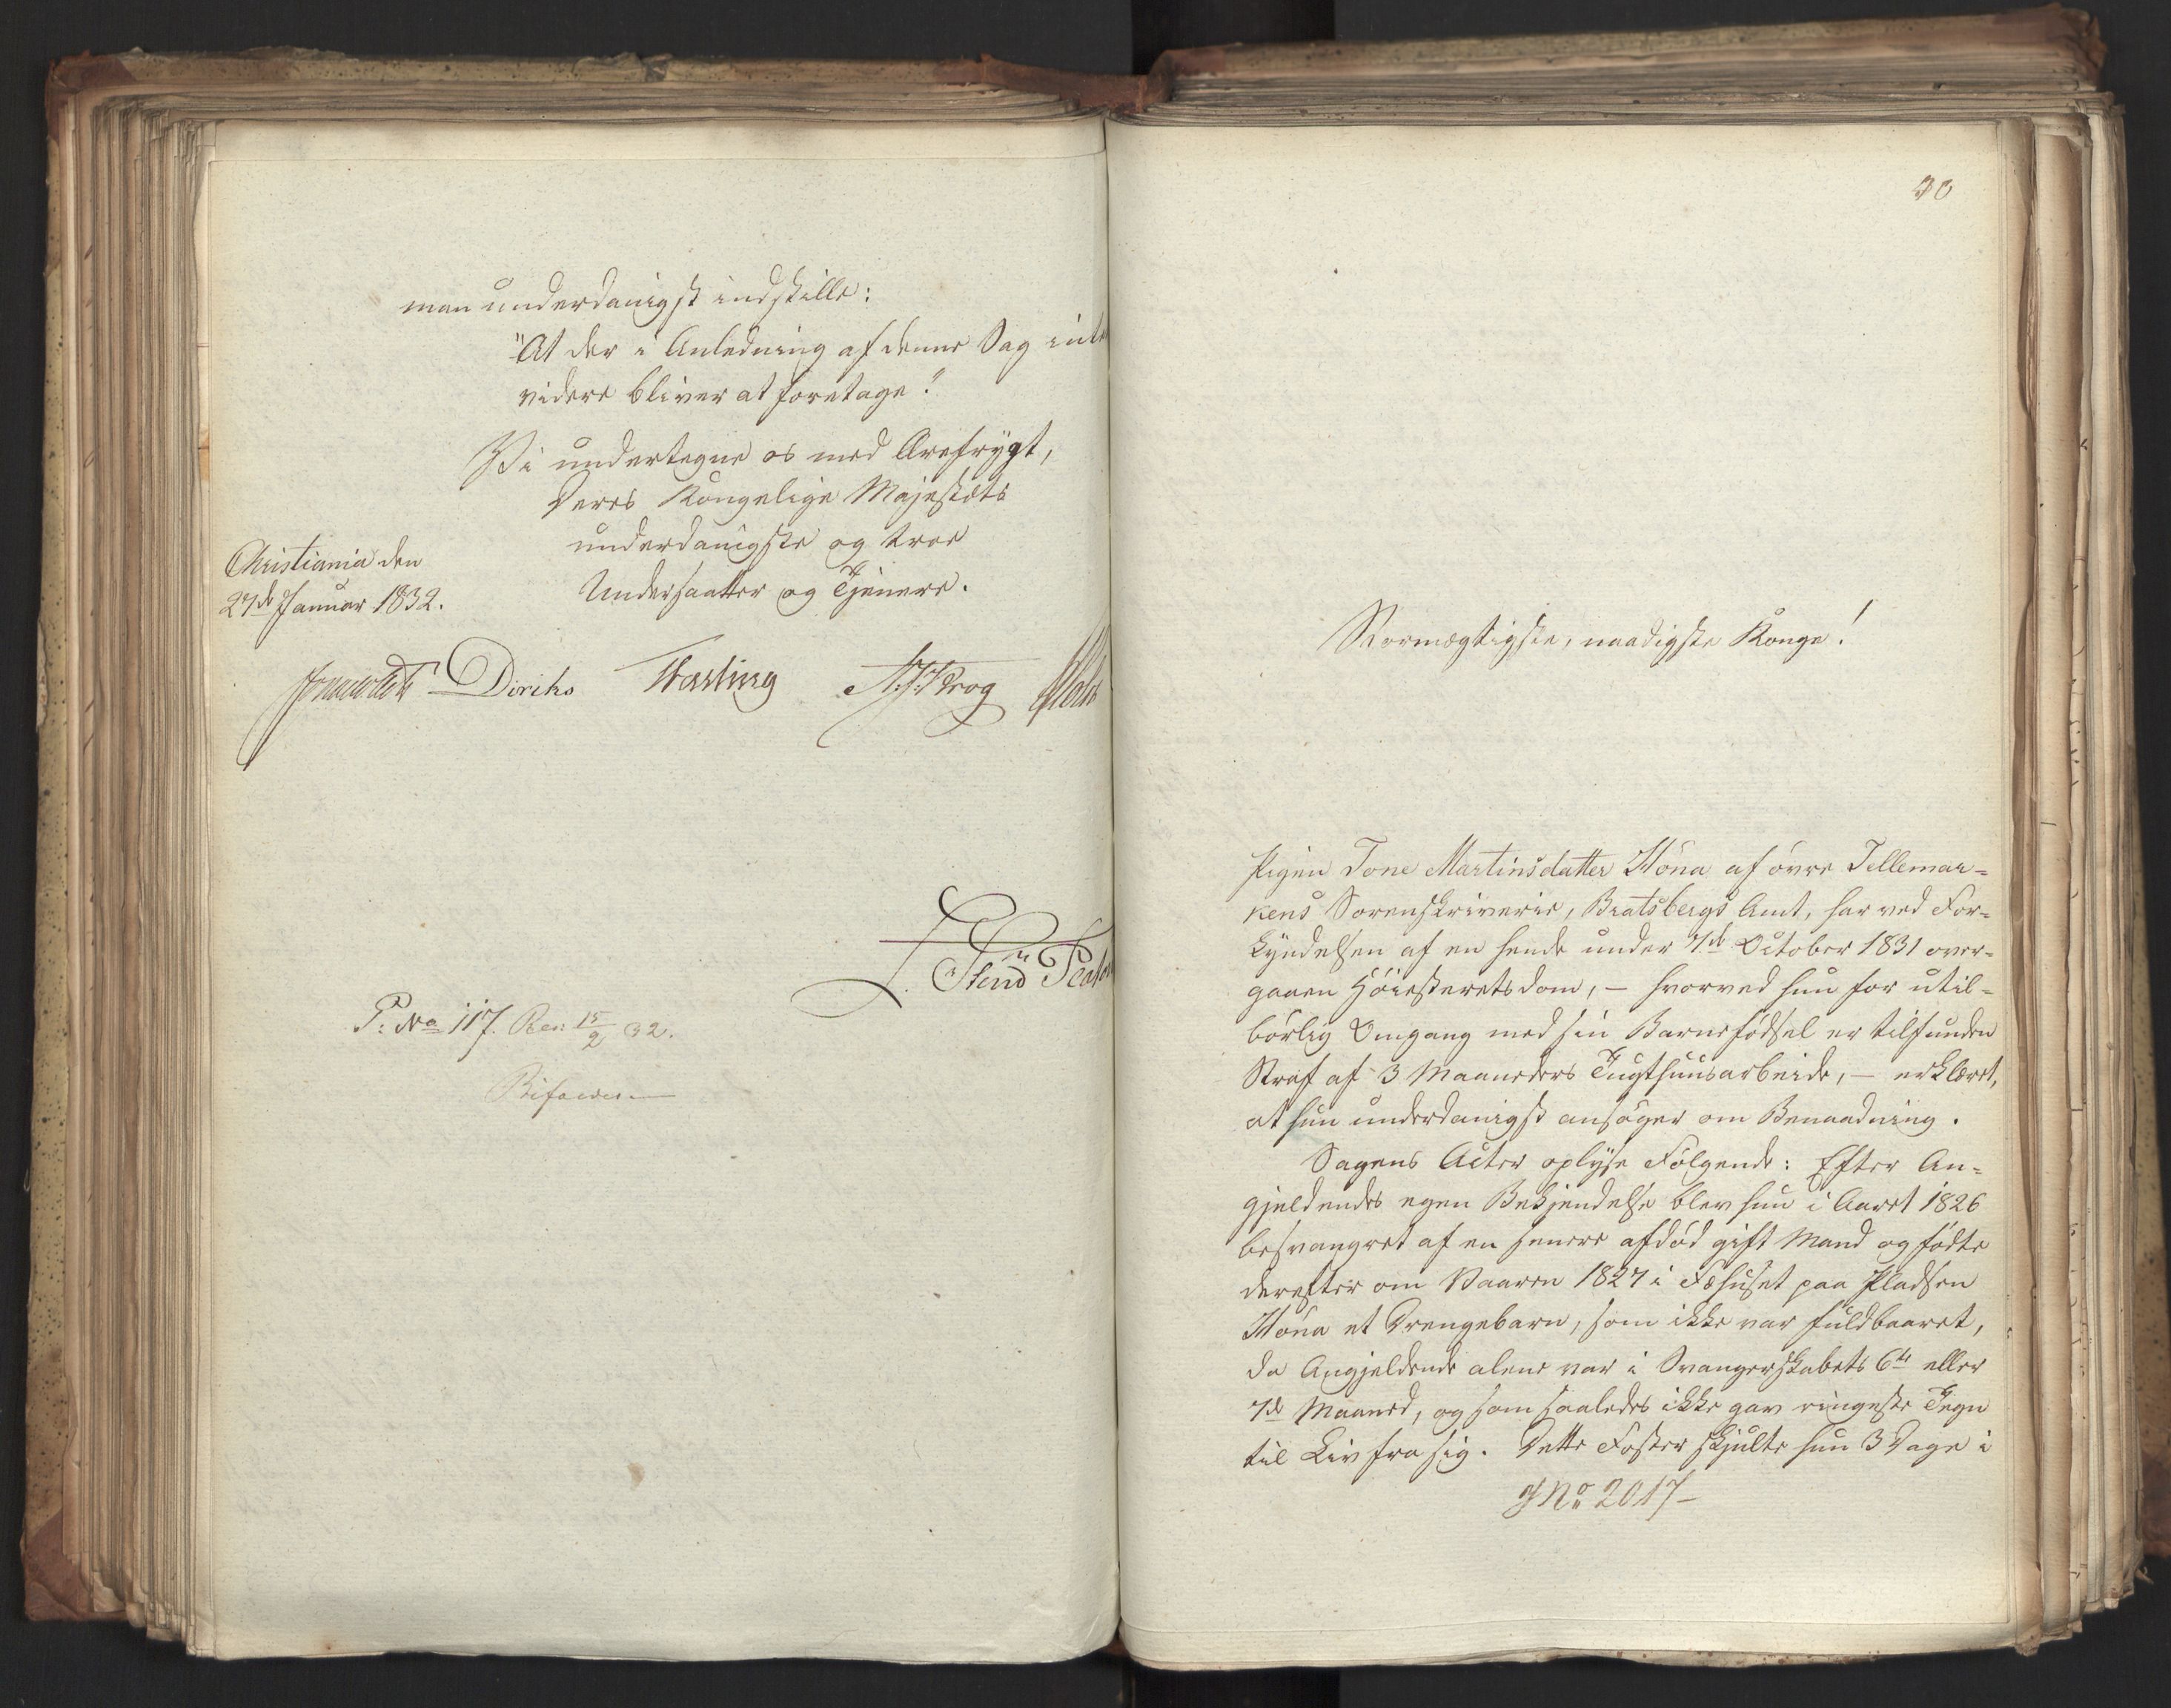 man underdanigst indstille:
"At der i Anledning af denne Sag intet
videre bliver at foretage."
Vi undertegne os med Ærefrygt,
Deres Kongelige Majestæts
underdanigste og troe
Undersaatter og Tjenere.
Christiania den
27de Januar 1832.
Diriks Fasting Krog Holst
P: No 117. Res: 15/2 32.
Bifaldes.
30
Stormægtigste, naadigste Konge!
Pigen Tone Martinsdatter Höna af övre Tellemar-
kens Sorenskriverie, Bratsbergs Amt, har ved For-
kyndelsen af en hende under 7de October 1831 over-
gaaen Höiesteretsdom, – hvorved hun for util-
börlig Omgang med sin Barnefödsel er tilfunden
Straf af 3 Maaneders Tugthuusarbeide, – erklæret,
at hun underdanigst ansöger om Benaadning.
Sagens Acter oplyse Fölgende: Efter An-
gjeldendes egen Bekjendelse blev hun i Aaret 1826
besvangret af en senere afdöd gift Mand og födte
derefter om Vaaren 1827 i Fæhuset paa Pladsen
Höna et Drengebarn, som ikke var fuldbaaret,
da Angjeldende alene var i Svangerskabets 6te eller
7de Maaned, og som saaledes ikke gav ringeste Tegn
til Liv fra sig. Dette Foster skjulte hun 3 Dage i
J No 2017–